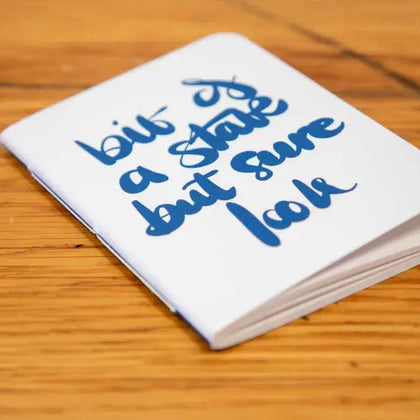 bit of
a state
but sure
look